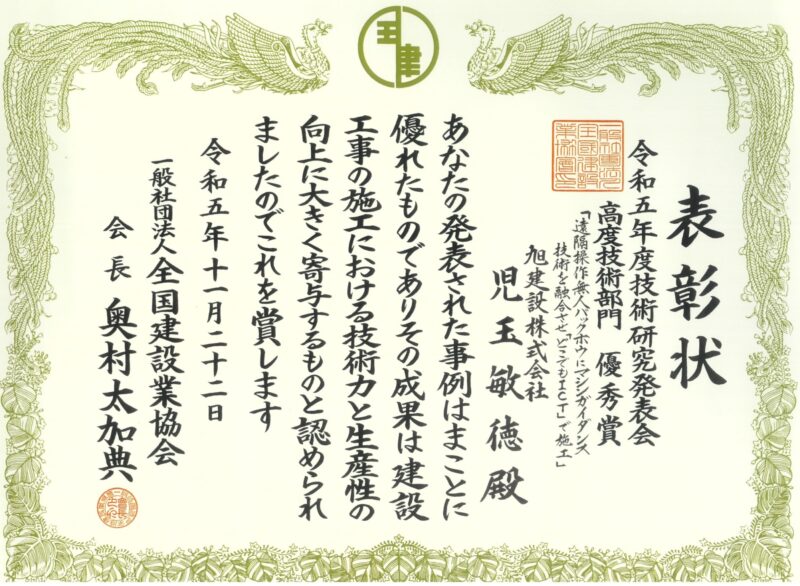 表彰状
令和五年度技術研究発表会
高度技術部門 優秀賞
「遠隔操作無人バックホウにマシンガイダンス
技術を融合させ、“どこでもICT”で施工」
旭建設株式会社
児玉敏徳殿
あなたの発表された事例はまことに
優れたものでありその成果は建設
工事の施工における技術力と生産性の
向上に大きく寄与するものと認められ
ましたのでこれを賞します
令和五年十一月二十二日
一般社団法人全国建設業協会
会長 奥村太加典
全建